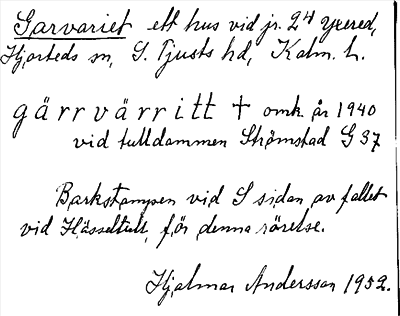 Garvariet ett hus vid jr. 2⁴ Yxered,
Hjorteds sn, S. Tjusts hd, Kalm. l.
gärrvärritt + omk. år 1940
vid tulldammen Strömstad G 37
Barkstampen vid S sidan av fallet
vid Hässeltult, för denna rörelse.
Hjalmar Andersson 1952.